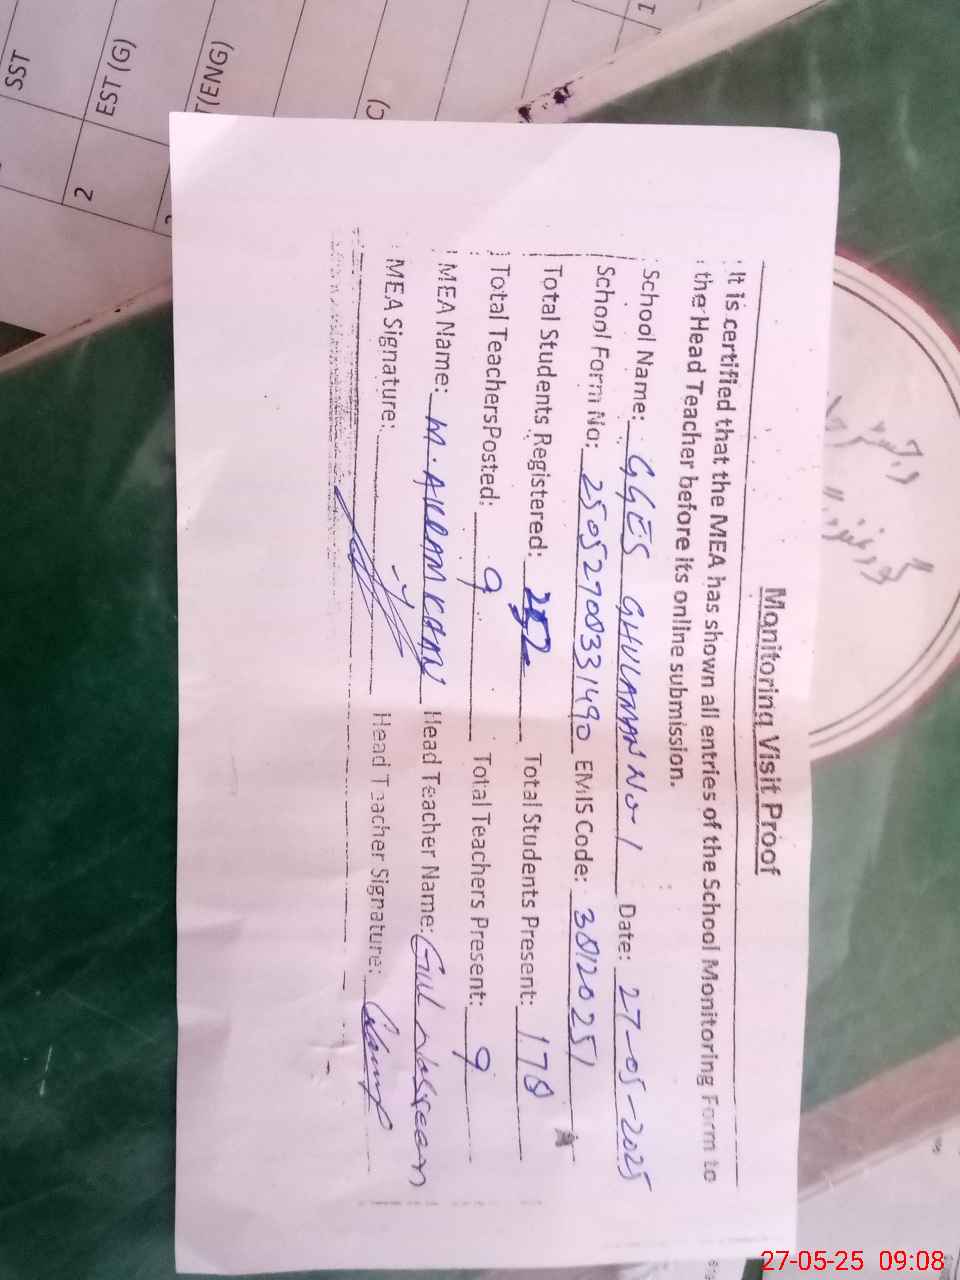 Monitoring Visit Proof
It is certified that the MEA has shown all entries of the School Monitoring Form to
the Head Teacher before its online submission.
School Name: GGES GHULAMAN NO-1 Date: 27-05-2025
School Form No: 25052708331490 EMIS Code: 38120251
Total Students Registered: 252 Total Students Present: 178
Total TeachersPosted: 9 Total Teachers Present: 9
MEA Name: M. AKRAM KHAN Head Teacher Name: Gul Nasreen
MEA Signature: Head Teacher Signature:
SST
EST (G)
2
(ENG)
27-05-25 09:08